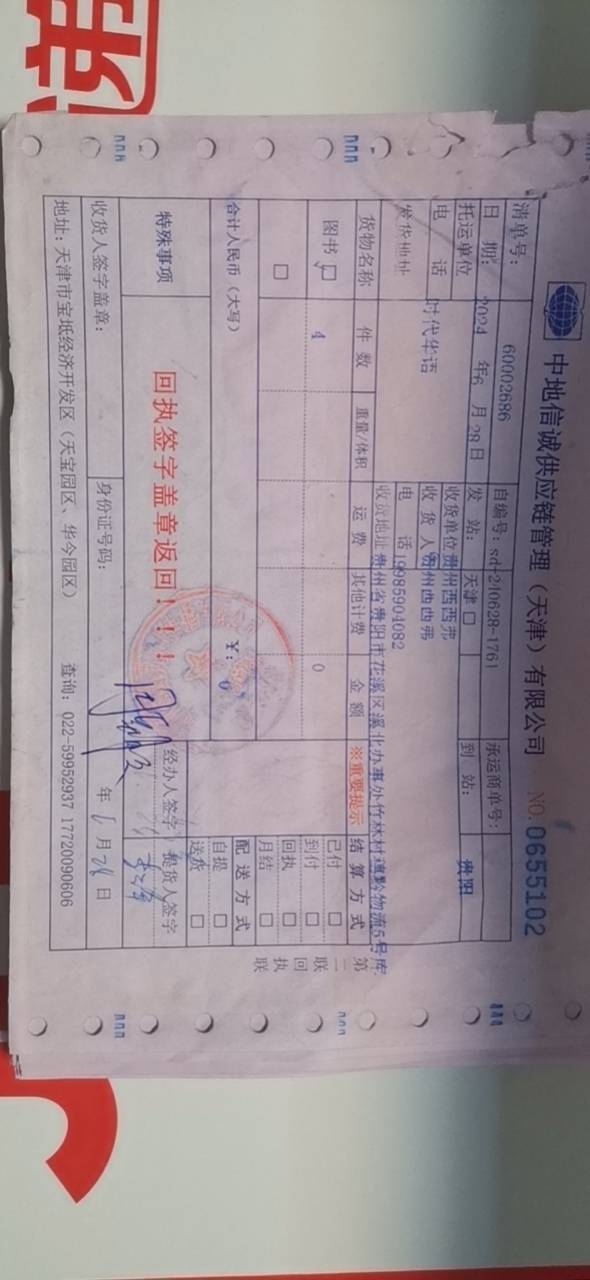 中地信诚供应链管理（天津）有限公司 NO.0655102
清单号： 60002686 自编号：sd-210628-1761 承运商单号：
日 期： 2024 年 6 月 28 日 发 站： 天津 到 站： 贵阳
托运单位 时代华语 收货单位 贵州西西弗
电 话 收 货 人 贵州西西弗
电 话 19985904082
发货地址 收货地址 贵州省贵阳市花溪区溪北办事处竹林村通黔物流5号库
货物名称 件 数 重量/体积 运 费 其他计费 金 额 ※重要提示 结 算 方 式
图书 4 0 已付 □
到付 □
□ 回执 □
月结 □
合计人民币（大写） ¥： 0 配 送 方 式
自提 □
送货 □
特殊事项 回执签字盖章返回！！！ 经办人签字 提货人签字
收货人签字盖章： 身份证号码： 年 月 日
地址：天津市宝坻经济开发区（天宝园区、华今园区） 查询：022-59952937 17720090606
第二联 回执联